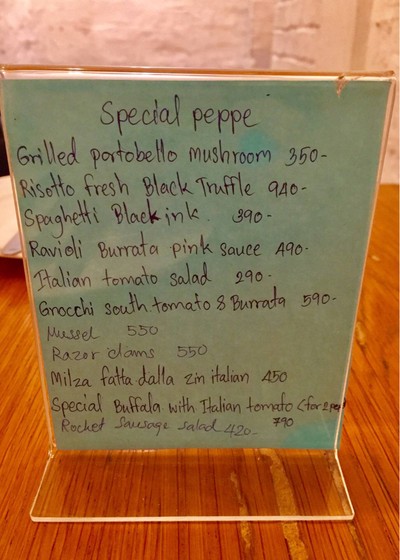 Special peppe
Grilled portobello mushroom 350-
Risotto fresh Black Truffle 940-
Spaghetti Black ink. 390-
Ravioli Burrata pink sauce 490-
Italian tomato salad 290-
Gnocchi south tomato & Burrata 590-
Mussel 550
Razor clams 550
Milza fatta dalla zin italian 450
Special Buffala with Italian tomato (for 2
790
Rocket Sausage salad 420-